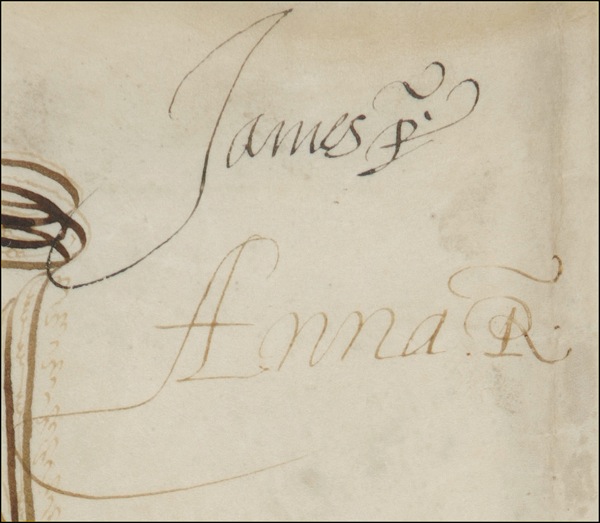 James R.
Anna . R.